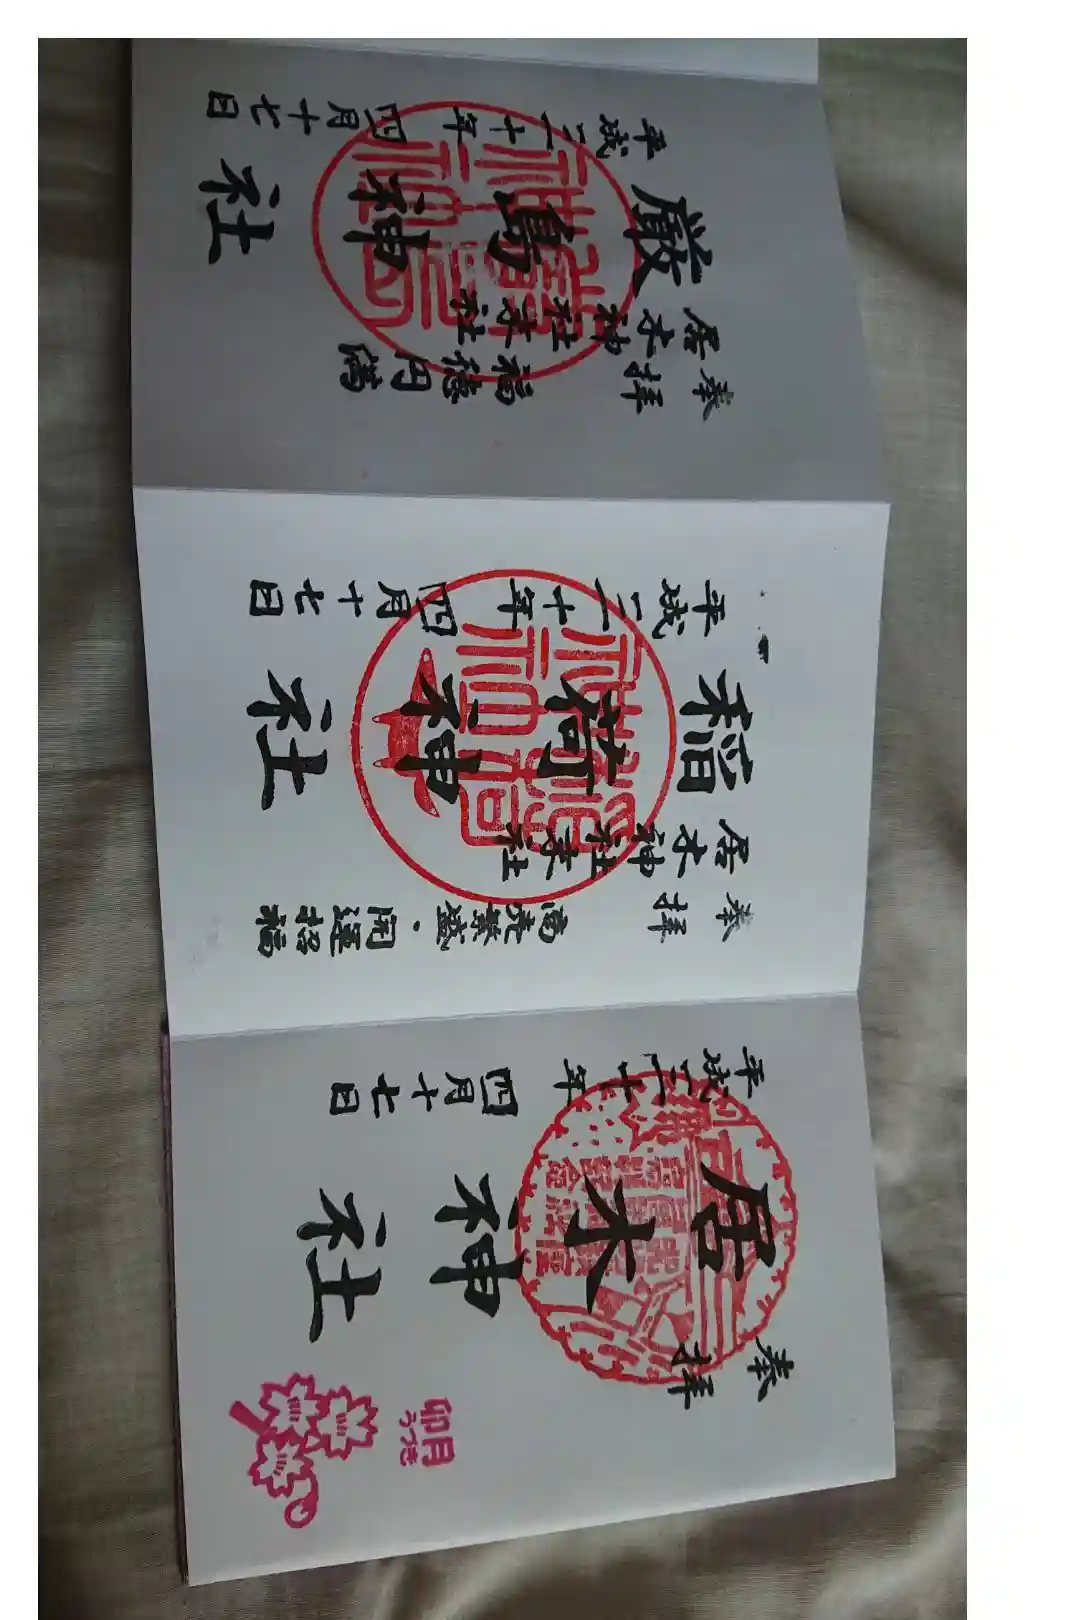 奉拝
卯月
うづき
居木神社
平成三十年四月十七日
奉拝
商売繁盛・開運招福
居木神社末社
稲荷神社
平成三十年四月十七日
奉拝
福徳円満
居木神社末社
厳島神社
平成三十年四月十七日